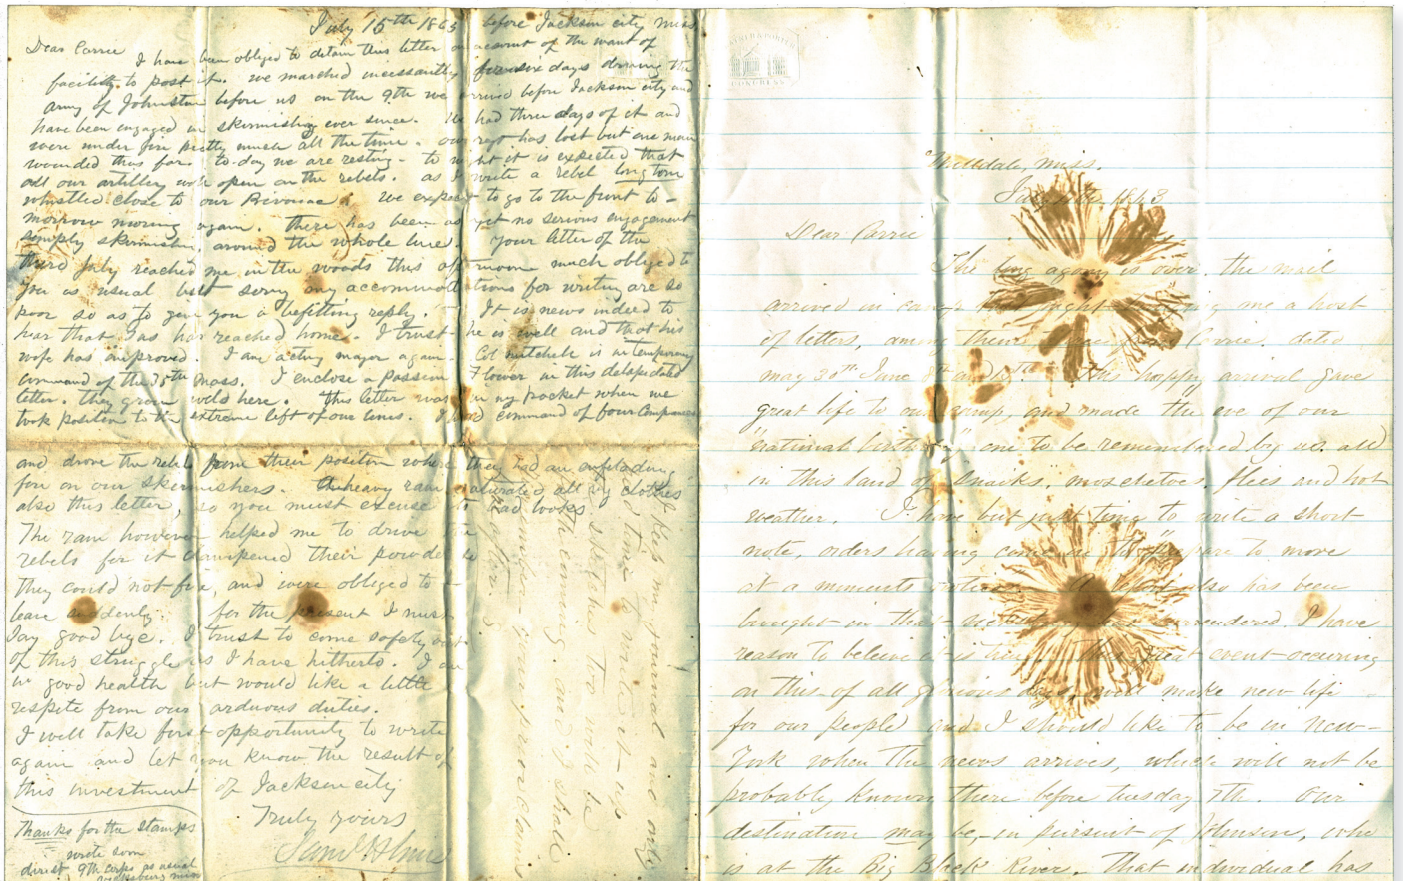 July 15th 1863 before Jackson city Miss
Dear Carrie
I have been obliged to detain this letter on account of the want of
facility to post it. we marched incessantly for six days driving the
army of Johnston before us on the 9th we arrived before Jackson city and
have been engaged in skirmishing ever since. We had three days of it and
were under fire pretty much all the time. our regt has lost but one man
wounded thus far. to-day we are resting. to night it is expected that
all our artillery will open on the rebels. as I write a rebel long tom
whistled close to our Bivouac. we expect to go to the front to-
morrow morning again. There has been as yet no serious engagement
simply skirmishing around the whole line. your letter of the
third July reached me in the woods this afternoon much obliged to
you as usual but sorry my accommodations for writing are so
poor so as to give you a befitting reply. It is news indeed to
hear that Jas has reached home. I trust he is well and that his
wife has improved. I am acting major again. Col Mitchell is in temporary
command of the mass. I enclose a passion Flower in this delapidated
letter. they grow wild here. This letter was in my pocket when we
took position to the extreme left of our lines. I had command of four companies
and drove the rebels from their position where they had an enfilading
fire on our skirmishers. The heavy rain saturated all my clothes
also this letter, so you must excuse its bad looks
The rain however helped me to drive the
rebels for it dampened their powder so
they could not fire, and were obliged to
leave suddenly. for the present I must
say good bye. I trust to come safely out
of this struggle as I have hitherto. I am
in good health but would like a little
respite from our arduous duties.
I will take first opportunity to write
again and let you know the result of
this investment of Jackson city
Truly yours
Thanks for the stamps
write soon
direct 9th corps as usual
Vicksburg Miss
I keep my journal and only
time to write it up
sketches too will be
forth coming. and I shall
remember your prior claim
CONGRESS
Milldale, Miss.
July 1863
Dear Carrie
The long agony is over. the mail
arrived in camp last night bringing me a host
of letters, among theirs Carrie. dated
may 30th June and This happy arrival gave
great life to our camp, and made the eve of our
"national birthday" one to be remembered by us all
in this land of Snakes, moschetoes, flees and hot
weather. I have but just time to write a short
note, orders having come in to prepare to move
at a moments notice. A report also has been
brought in that surrendered. I have
reason to believe it is true. this great event occuring
on this of all glorious days, will make new life
for our people and I should like to be in New-
York when the news arrives, which will not be
probably known there before tuesday 7th. Our
destination may be, in pursuit of Johnson, who
is at the Big Black River. That individual has